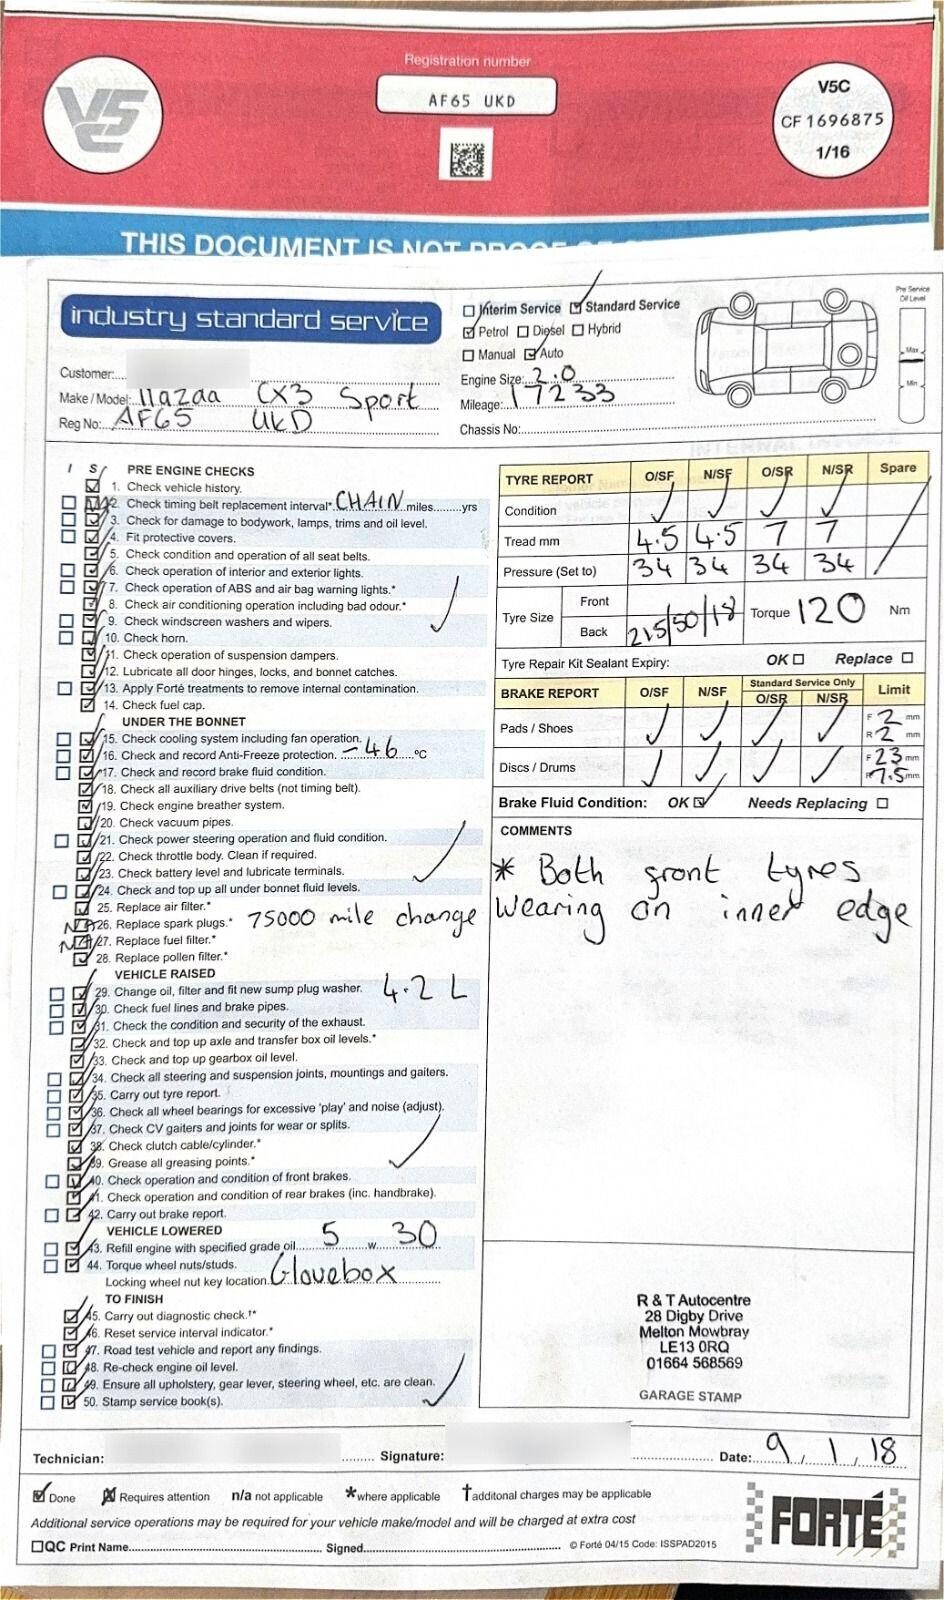 Registration number
AF65 UKD
V5C
V5C
CF 1696875
1/16
THIS DOCUMENT IS NOT PROOF OF
industry standard service
Interim Service Standard Service
Petrol Diesel Hybrid
Manual Auto
Engine Size: 2.0
Mileage: 17233
Chassis No:
Pre Service
Oil Level
Max
Min
Customer:
Make / Model: Mazda CX3 Sport
Reg No: AF65 UKD
I S PRE ENGINE CHECKS
1. Check vehicle history.
NA 2. Check timing belt replacement interval*. CHAIN miles yrs
3. Check for damage to bodywork, lamps, trims and oil level.
4. Fit protective covers.
5. Check condition and operation of all seat belts.
6. Check operation of interior and exterior lights.
7. Check operation of ABS and air bag warning lights.*
8. Check air conditioning operation including bad odour.*
9. Check windscreen washers and wipers.
10. Check horn.
11. Check operation of suspension dampers.
12. Lubricate all door hinges, locks, and bonnet catches.
13. Apply Forté treatments to remove internal contamination.
14. Check fuel cap.
UNDER THE BONNET
15. Check cooling system including fan operation.
16. Check and record Anti-Freeze protection. -46 °C
17. Check and record brake fluid condition.
18. Check all auxiliary drive belts (not timing belt).
19. Check engine breather system.
20. Check vacuum pipes.
21. Check power steering operation and fluid condition.
22. Check throttle body. Clean if required.
23. Check battery level and lubricate terminals.
24. Check and top up all under bonnet fluid levels.
25. Replace air filter.*
NA 26. Replace spark plugs.* 75000 mile change
NA 27. Replace fuel filter.*
28. Replace pollen filter.*
VEHICLE RAISED
29. Change oil, filter and fit new sump plug washer. 4.2 L
30. Check fuel lines and brake pipes.
31. Check the condition and security of the exhaust.
32. Check and top up axle and transfer box oil levels.*
33. Check and top up gearbox oil level.
34. Check all steering and suspension joints, mountings and gaiters.
35. Carry out tyre report.
36. Check all wheel bearings for excessive 'play' and noise (adjust).
37. Check CV gaiters and joints for wear or splits.
38. Check clutch cable/cylinder.*
39. Grease all greasing points.*
40. Check operation and condition of front brakes.
41. Check operation and condition of rear brakes (inc. handbrake).
42. Carry out brake report.
VEHICLE LOWERED
43. Refill engine with specified grade oil 5 w 30
44. Torque wheel nuts/studs.
Locking wheel nut key location Glovebox
TO FINISH
45. Carry out diagnostic check.†*
46. Reset service interval indicator.*
47. Road test vehicle and report any findings.
48. Re-check engine oil level.
49. Ensure all upholstery, gear lever, steering wheel, etc. are clean.
50. Stamp service book(s).
TYRE REPORT O/SF N/SF O/SR N/SR Spare
Condition
Tread mm 4.5 4.5 7 7
Pressure (Set to) 34 34 34 34
Tyre Size Front
Back
215/50/18
Torque 120 Nm
Tyre Repair Kit Sealant Expiry: OK Replace
BRAKE REPORT O/SF N/SF Standard Service Only O/SR N/SR Limit
Pads / Shoes F 2 mm
R 2 mm
Discs / Drums F 23 mm
7.5 mm
Brake Fluid Condition: OK Needs Replacing
COMMENTS
* Both front tyres
wearing on inner edge
R & T Autocentre
28 Digby Drive
Melton Mowbray
LE13 0RQ
01664 568569
GARAGE STAMP
Technician: Signature: Date: 9, 1, 18
Done Requires attention n/a not applicable *where applicable †additonal charges may be applicable
Additional service operations may be required for your vehicle make/model and will be charged at extra cost
QC Print Name Signed © Forté 04/15 Code: ISSPAD2015
FORTÉ